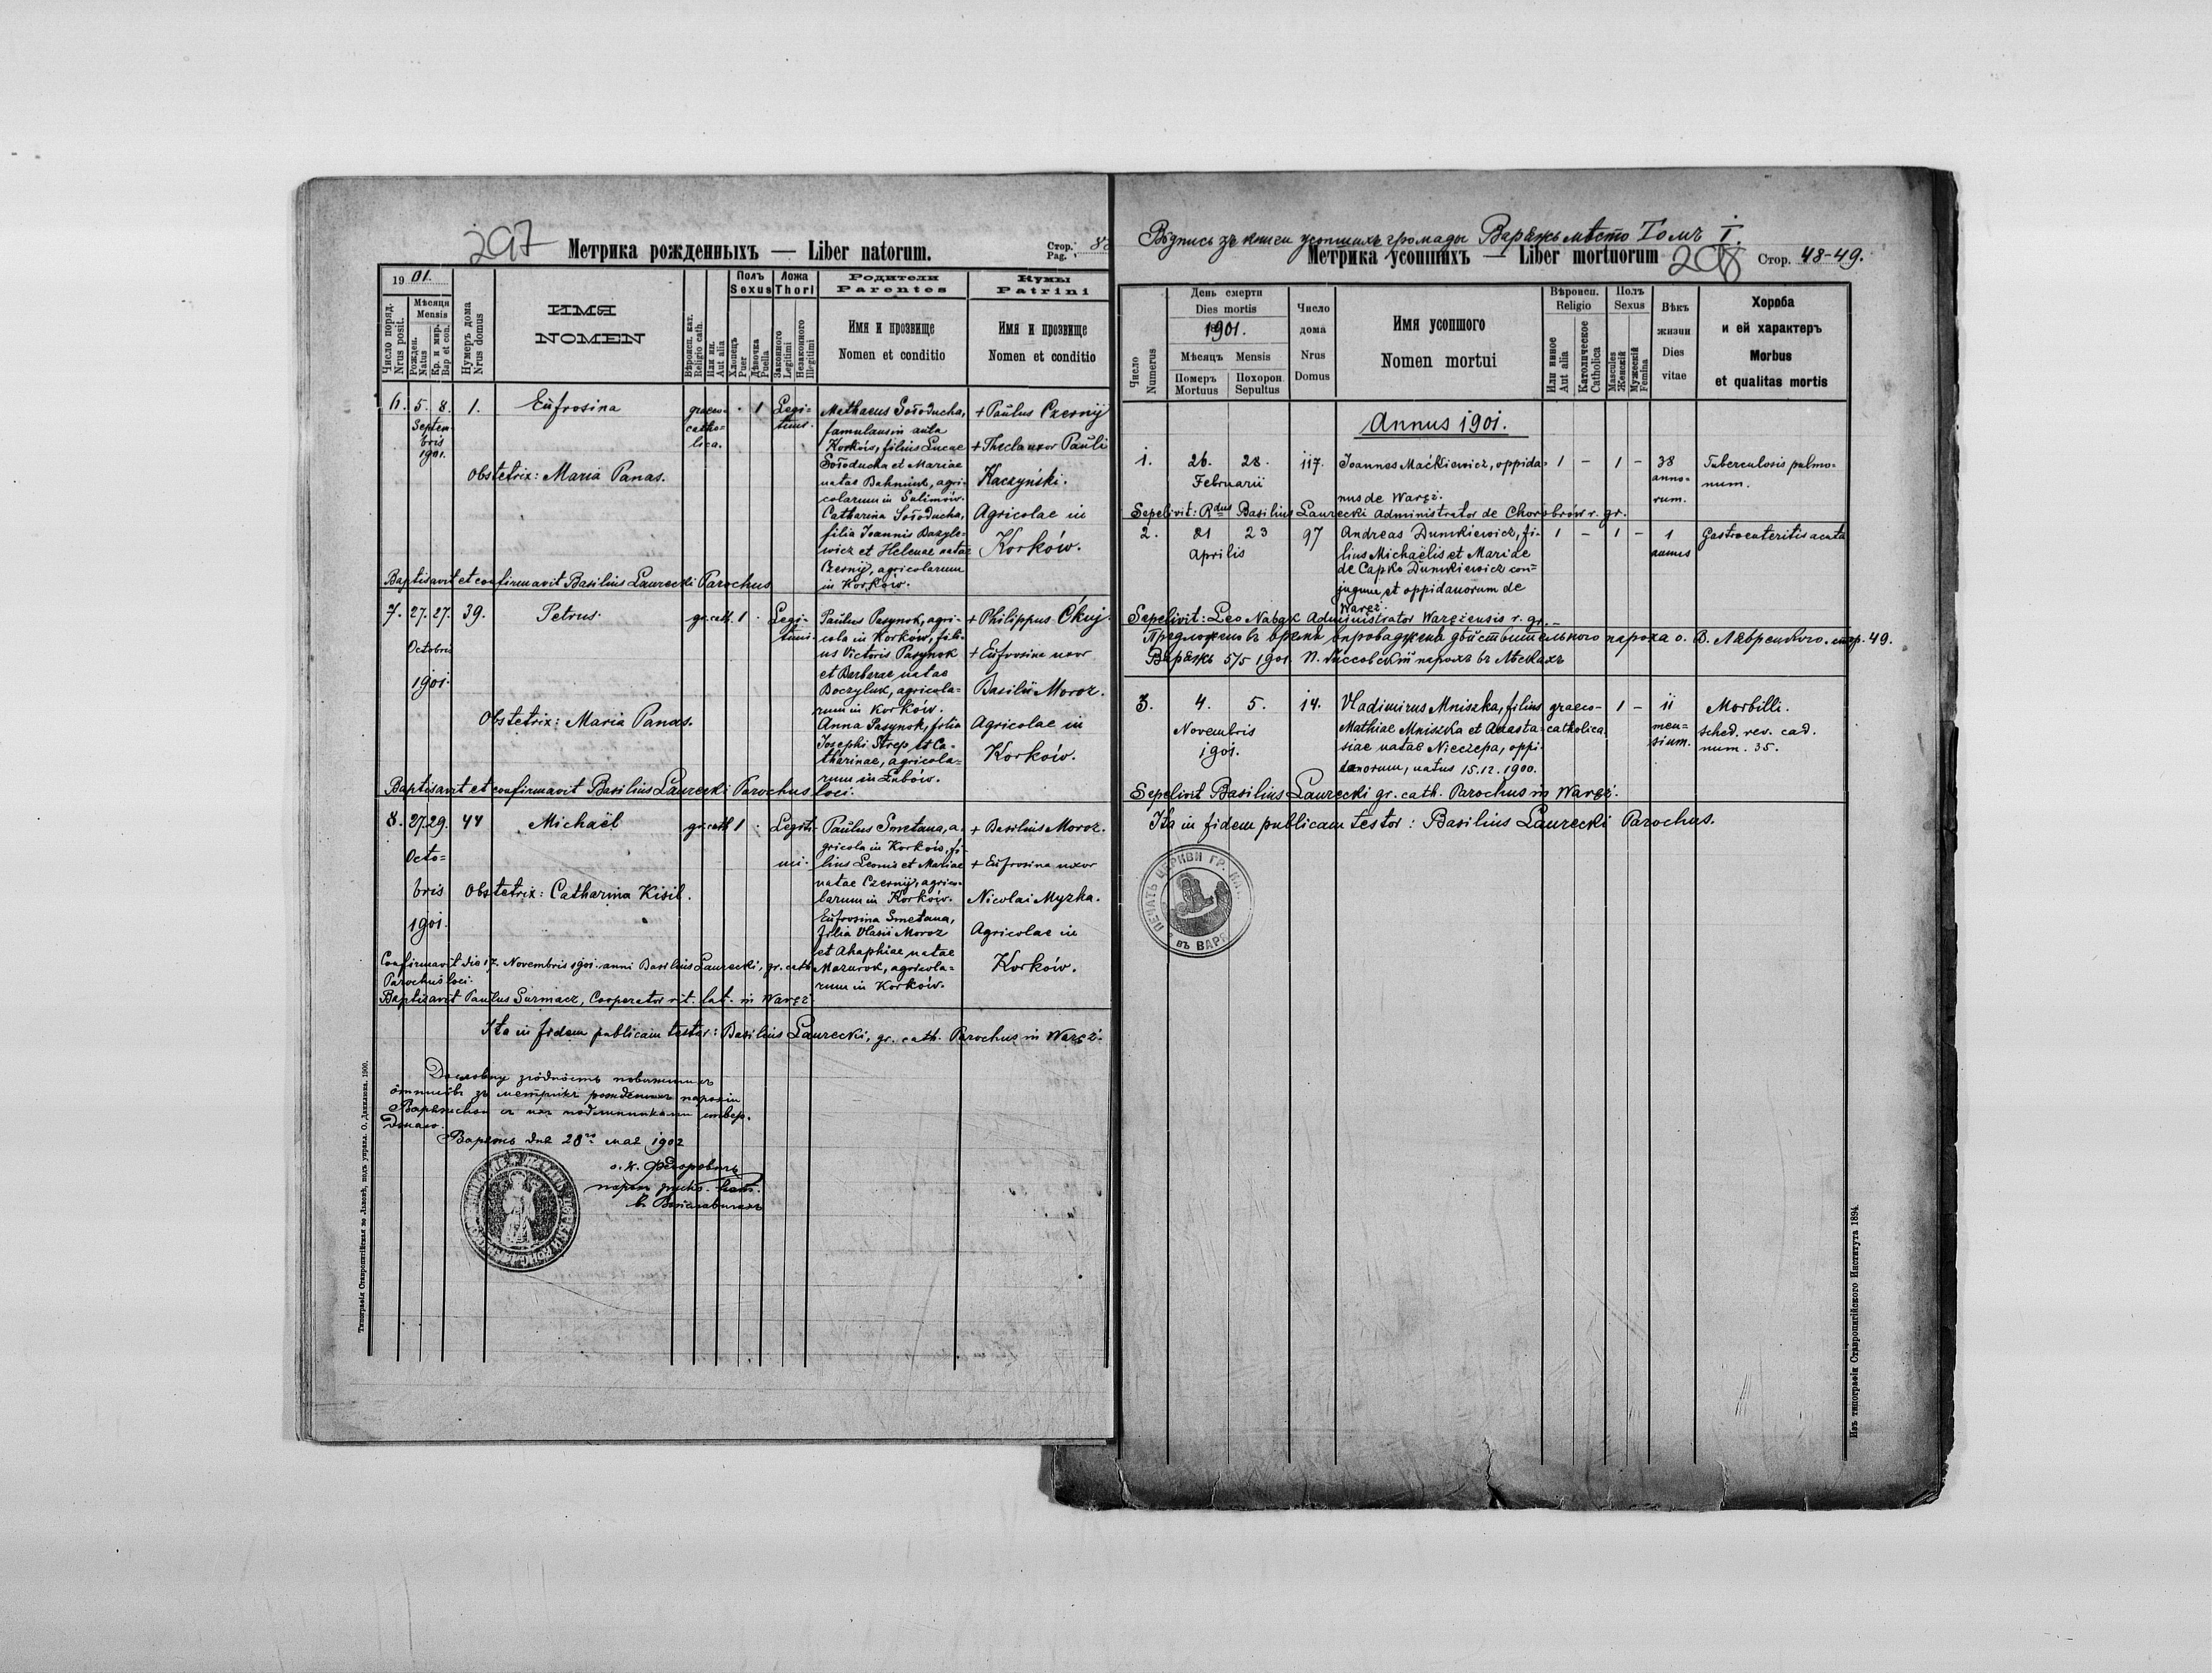 297
Метрика рожденныхъ — Liber natorum.
Стор. Pag. 88
1901.
Число поряд. Nrus posit.
Мѣсяця Mensis
Рожден. Natus
Кр. и мѵр. Bap et con.
Нумеръ дома Nrus domus
ИМЯ
NOMEN
Вѣроисп. кат. Religio cath.
Или ин. Aut alia
Полъ Sexus
Хлопецъ Puer
Дѣвочка Puella
Ложа Thori
Законного Legitimi
Незаконного Illegitimi
Родители
Parentes
Имя и прозвище
Nomen et conditio
Кумы
Patrini
Имя и прозвище
Nomen et conditio
6. 5. 8. 1. Eufrosina
Septem-
bris
1901.
graeco-
catho-
lica.
1
Legi-
timi.
Mathaeus Sołoducha,
famulans in aula
Korków, filius Lucae
Sołoducha et Mariae
natae Bahniuk, agri-
colarum in Sulimów.
Catharina Sołoducha,
filia Joannis Bazylo-
wicz et Helenae natae
Czernij, agricolarum
in Korków.
+ Paulus Czernij
+ Thecla uxor Pauli
Kaczyński.
Agricolae in
Korków.
Obstetrix: Maria Panas.
Baptisavit et confirmavit Basilius Laurecki Parochus
7. 27. 27. 39. Petrus
Octobris
1901.
gr. cath. 1
Legi-
timi.
Paulus Pasynok, agri-
cola in Korków, fili-
us Victoris Pasynok
et Barbarae natae
Boczyluk, agricola-
rum in Korków.
Anna Pasynok, filia
Josephi Strep et Ca-
tharinae, agricola-
rum in Lubów.
+ Philippus Okuj.
+ Eufrosina uxor
Basilii Moroz.
Agricolae in
Korków.
Obstetrix: Maria Panas.
Baptisavit et confirmavit Basilius Laurecki Parochus loci.
8. 27. 29. 44 Michaël
Octo-
bris
1901.
gr. cath 1
Legiti-
mi.
Paulus Smetana, a-
gricola in Korków, fi-
lius Leonis et Mariae
natae Czernij, agrico-
larum in Korków.
Eufrosina Smetana,
filia Vlasii Moroz
et Ahaphiae natae
Mazurok, agricola-
rum in Korków.
+ Basilius Moroz.
+ Eufrosina uxor
Nicolai Myzka.
Agricolae in
Korków.
Obstetrix: Catharina Kisil.
Confirmavit die 17. Novembris 1901. anni Basilius Laurecki, gr. cath.
Parochus loci.
Baptisavit Paulus Surmacz, Cooperator rit. lat. in Waręż
Ita in fidem publicam testor: Basilius Laurecki, gr. cath. Parochus in Waręż.
Дословну згôдность
зъ метрикъ
Варяжь дня 28го мая 1902
Типографія Ставропигійская во Львовѣ, подъ управл. О. Данилюка. 1900.
Вôдпись зъ книги усопшихъ громады Варяжь мѣсто Томъ I.
Метрика усопшихъ — Liber mortuorum
298
Стор. 48-49.
Число Numerus
День смерти
Dies mortis
1901.
Мѣсяцъ Mensis
Померъ Mortuus
Похорон. Sepultus
Число дома
Nrus Domus
Имя усопшого
Nomen mortui
Вѣроисп.
Religio
Или инное Aut alia
Католическое Catholica
Полъ
Sexus
Mascules Женскій
Мужескій Femina
Вѣкъ жизни
Dies vitae
Хороба
и ей характеръ
Morbus
et qualitas mortis
Annus 1901.
1. 26. 28. 117. Joannes Maćkiewicz, oppida-
Februarii
nus de Waręż.
1 – 1 – 38
anno-
rum.
Tuberculosis pulmo-
num.
Sepelivit: Rdus Basilius Laurecki Administrator de Chorobrów r. gr.
2. 21 23 97 Andreas Dumkiewicz, fi-
Aprilis
lius Michaëlis et Mariae
de Capko Dumkiewicz con-
jugum et oppidanorum de
Waręż.
1 – 1 – 1
annus
Gastroenteritis acuta
Sepelivit: Leo Nabak Administrator Waręzensis r. gr.
Предложено въ время впроваджена дѣйствительного пароха о. В. Лаврецкого. стор. 49.
Варяжь 5/5 1901. парохъ въ
3. 4. 5. 14. Vladimirus Mniszka, filius
Novembris
1901.
Mathiae Mniszka et Anasta-
siae natae Nieczepa, oppi-
danorum, natus 15.12.1900.
graeco-
catholica.
1 – 11
men-
sium.
Morbilli.
sched. rev. cad.
num. 35.
Sepelivit Basilius Laurecki gr. cath. Parochus in Waręż.
Ita in fidem publicam testor: Basilius Laurecki Parochus.
ПЕЧАТЬ ЦЕРКВИ ГР. КАТ. ВЪ ВАРЯ
Изъ типографіи Ставропигійского Института 1894.